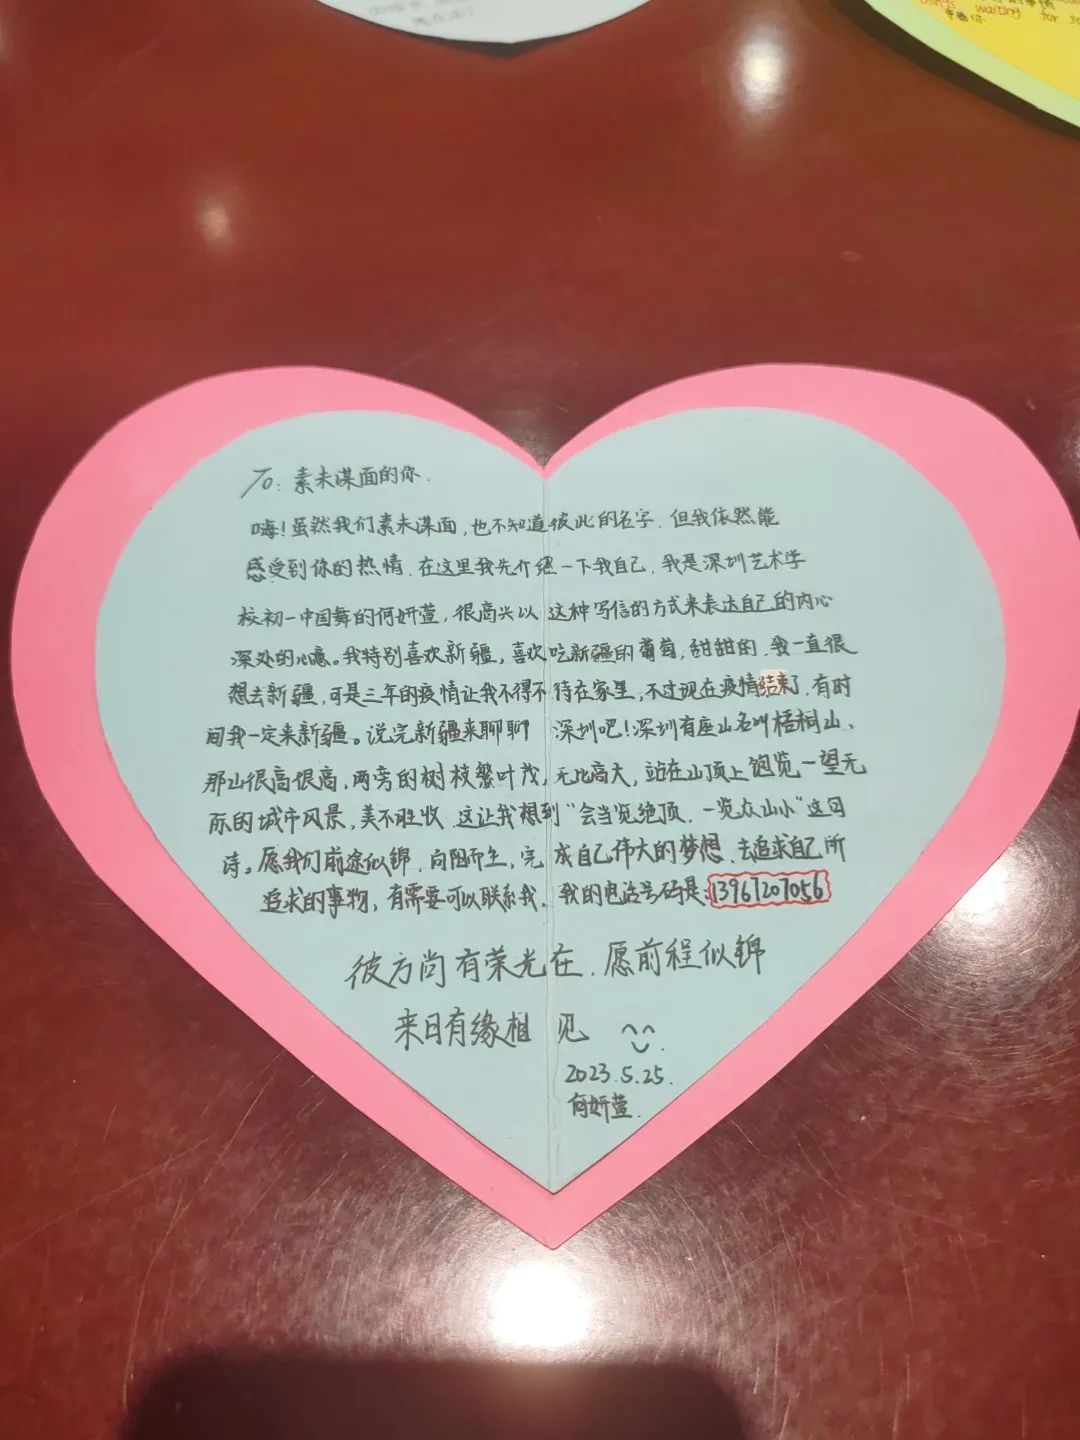 things waiting for
To: 素未谋面的你.
嗨！虽然我们素未谋面，也不知道彼此的名字．但我依然能
感受到你的热情．在这里我先介绍一下我自己．我是深圳艺术学
校初一中国舞的何妍萱，很高兴以这种写信的方式来表达自己的内心
深处的心意。我特别喜欢新疆，喜欢吃新疆的葡萄，甜甜的．我一直很
想去新疆，可是三年的疫情让我不得不待在家里，不过现在疫情结束了．有时
间我一定来新疆。说完新疆来聊聊深圳吧！深圳有座山名叫梧桐山、
那山很高很高，两旁的树枝繁叶茂，无比高大，站在山顶上饱览一望无
际的城市风景，美不胜收．这让我想到“会当览绝顶．一览众山小”这句
诗。愿我们前途似锦．向阳而生，完成自己伟大的梦想．去追求自己所
追求的事物，有需要可以联系我．我的电话号码是：13967207056
彼方尚有荣光在．愿前程似锦
来日有缘相见
2023.5.25.
何妍萱.